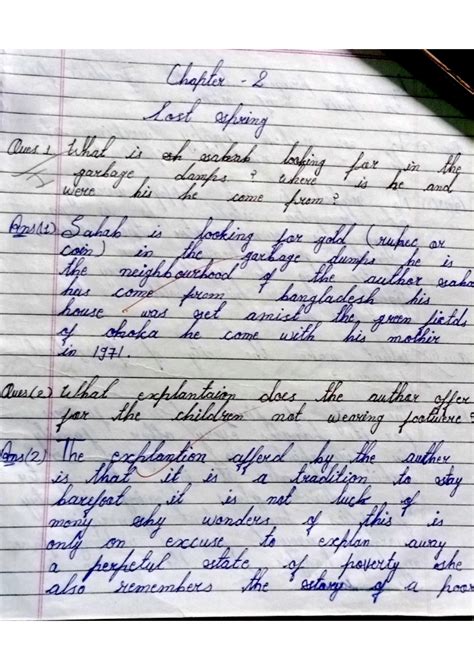 Chapter - 2
Lost Spring
Ques 1 What is sahab looking far in the
garbage dumps ? where is he and
were his he come from ?
Ans(1) Sahab is looking for gold (rupee or
coin) in the garbage dumps he is
the neighbourhood of the author saha
has come from bangladesh his
house was set amist the green fields
of Dhaka he come with his mother
in 1971.
Ques(2) What explantaion does the author offer
for the children not wearing footwere ?
Ans(2) The explantion afferd by the auther
is that it is a tradition to stay
barefoat it is not luck of
mony shy wonders if this is
only on excuse to explan away
a perpetul state of poverty she
also remembers the story of a poor